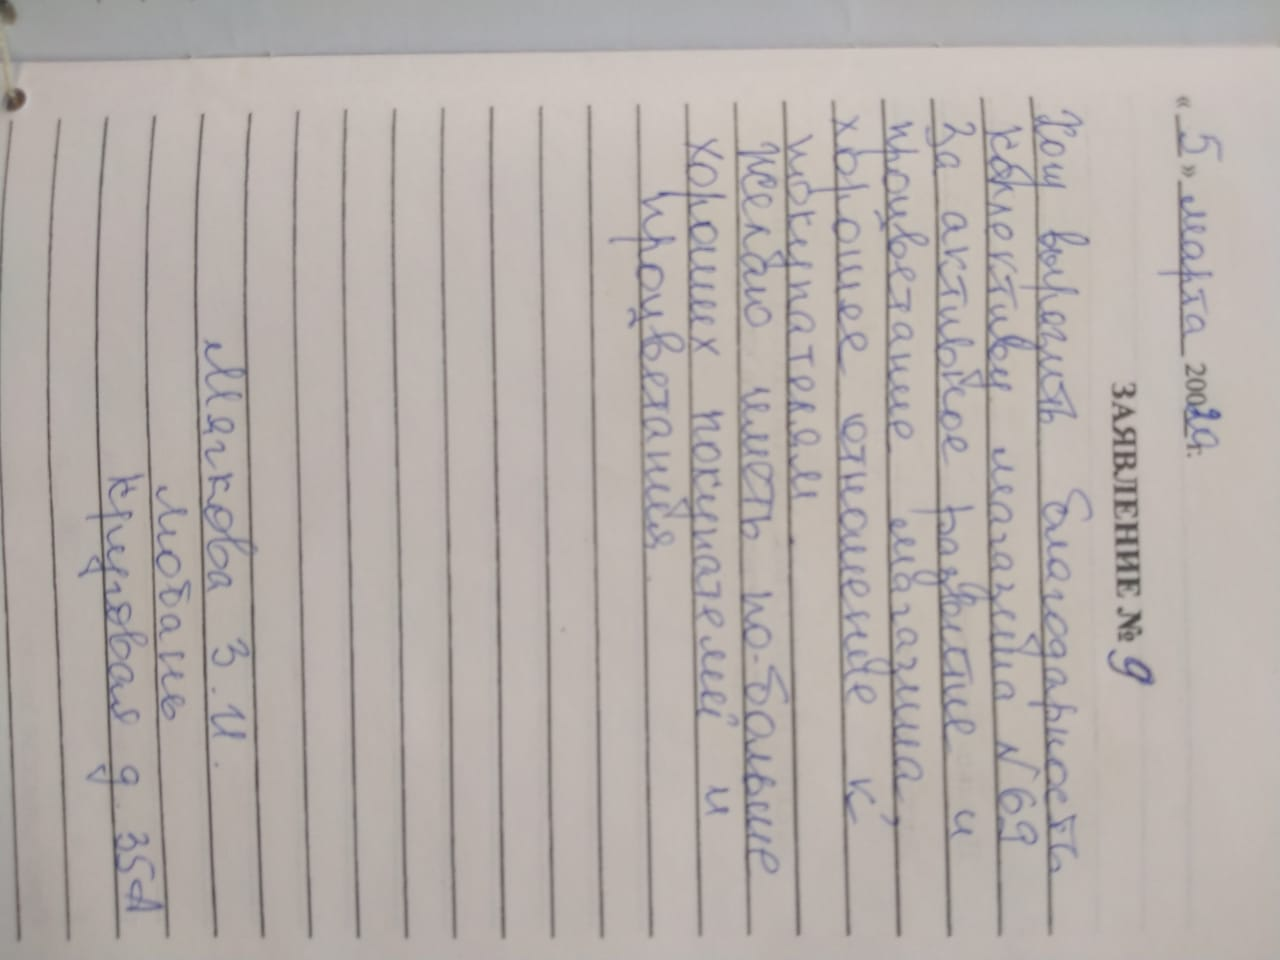 «5» марта 20020г.
ЗАЯВЛЕНИЕ № 9
Хочу выразить благодарность
коллективу магазина №69
За активное развитие и
процветание магазина,
хорошее отношение к
покупателям.
желаю иметь по-больше
хороших покупателей и
процветания
Мягкова З.И.
Любань
Круговая д. 35А